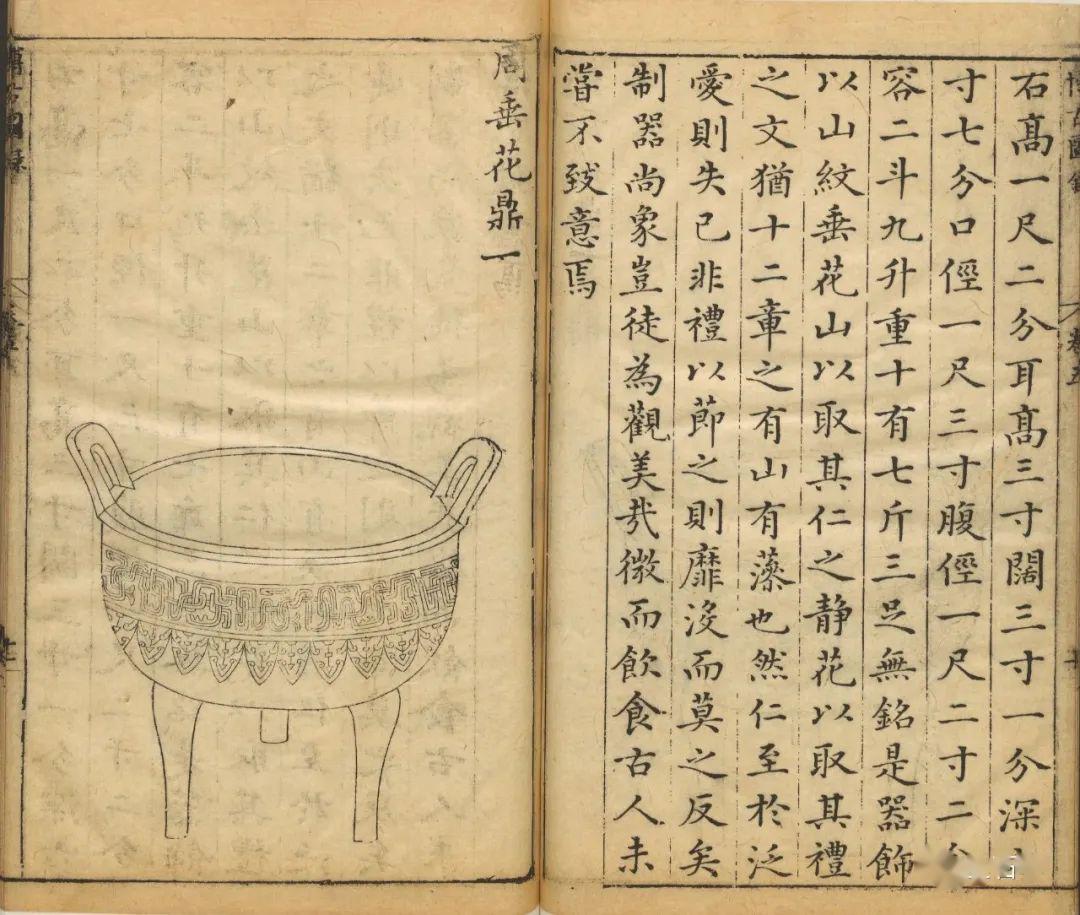 右髙一尺二分耳髙三寸闊三寸一分深
寸七分口徑一尺三寸腹徑一尺二寸二分
容二斗九升重十有七斤三足無銘是器飾
以山紋垂花山以取其仁之静花以取其禮
之文猶十二章之有山有藻也然仁至於泛
愛則失已非禮以節之則靡沒而莫之反矣
制器尚象豈徒為觀美哉微而飲食古人未
嘗不致意焉
周垂花鼎一